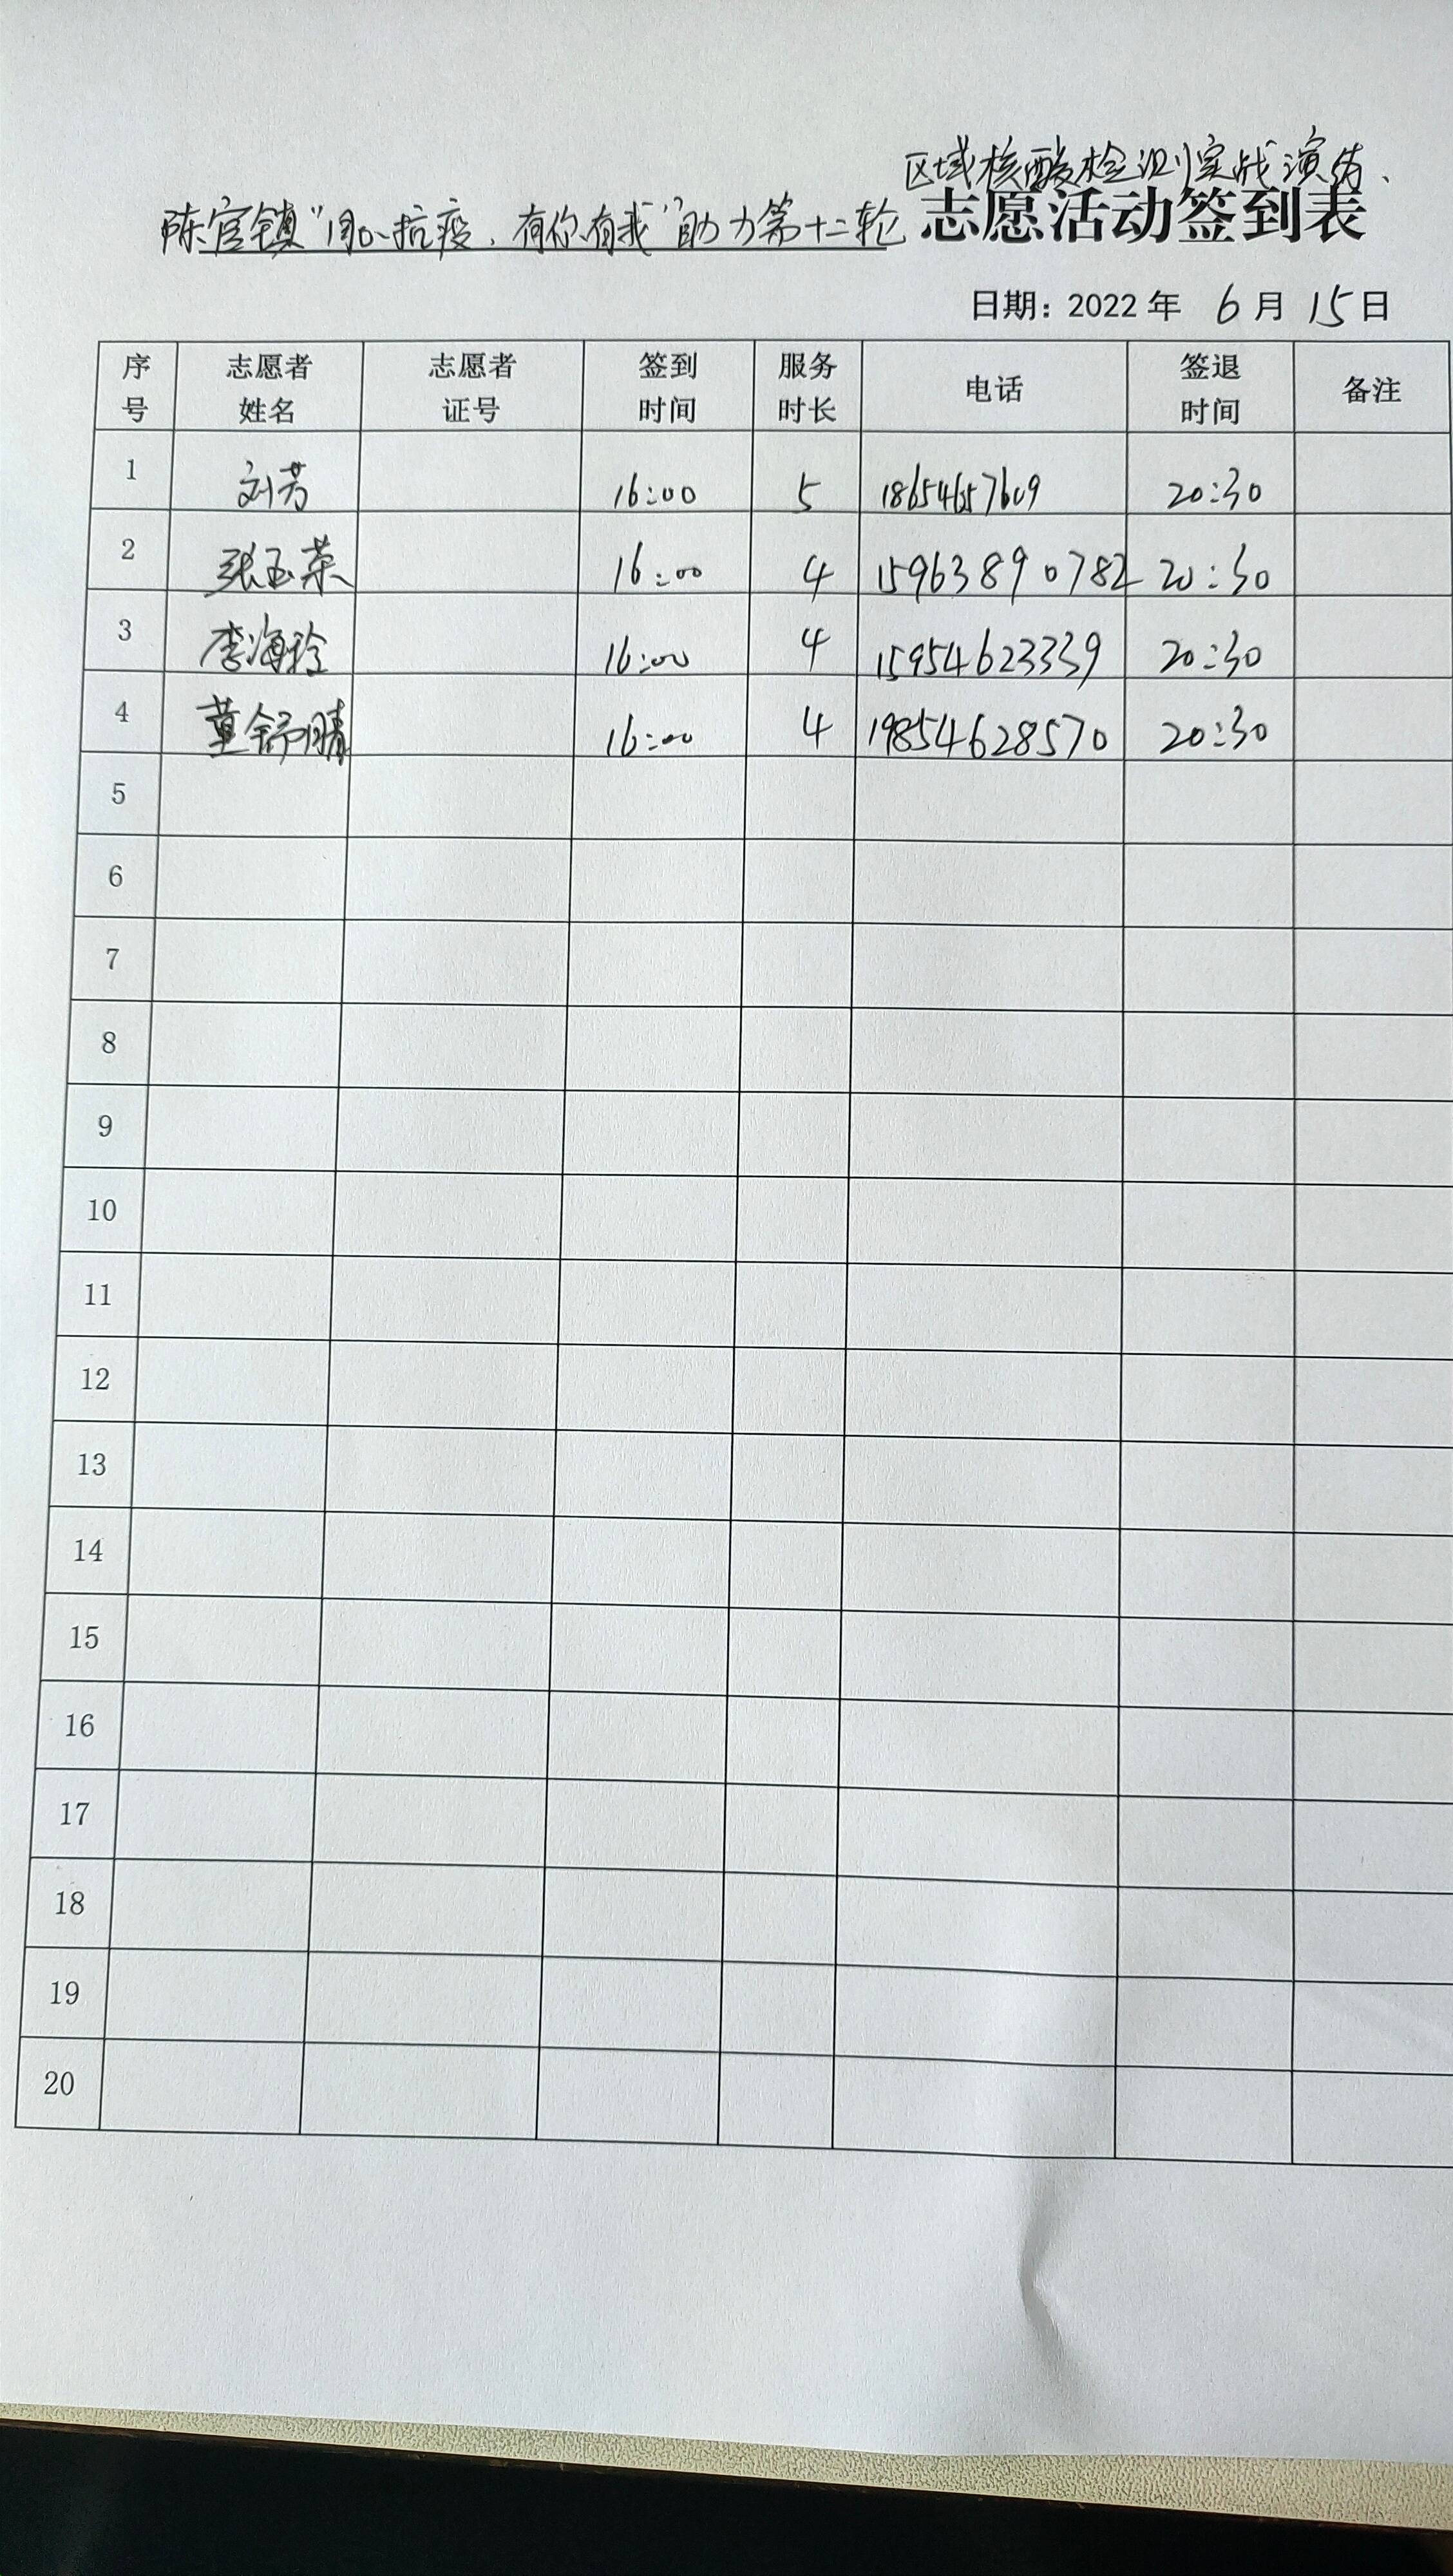 区域核酸检测实战演练、
陈官镇“同心抗疫、有你有我”助力第十二轮 志愿活动签到表
日期：2022 年 6 月 15 日
序号 志愿者姓名 志愿者证号 签到时间 服务时长 电话 签退时间 备注
1 刘芳 16:00 5 18654657609 20:30
2 张玉荣 16:00 4 15963890782 20:30
3 李海玲 16:00 4 15954623339 20:30
4 董舒晴 16:00 4 19854628570 20:30
5
6
7
8
9
10
11
12
13
14
15
16
17
18
19
20